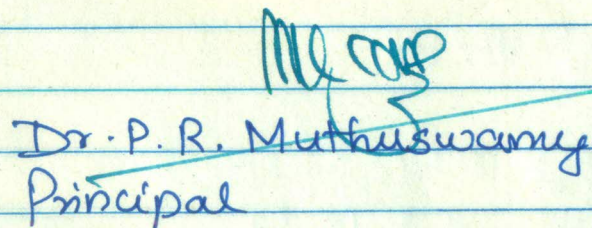 Dr. P. R. Muthuswamy
Principal